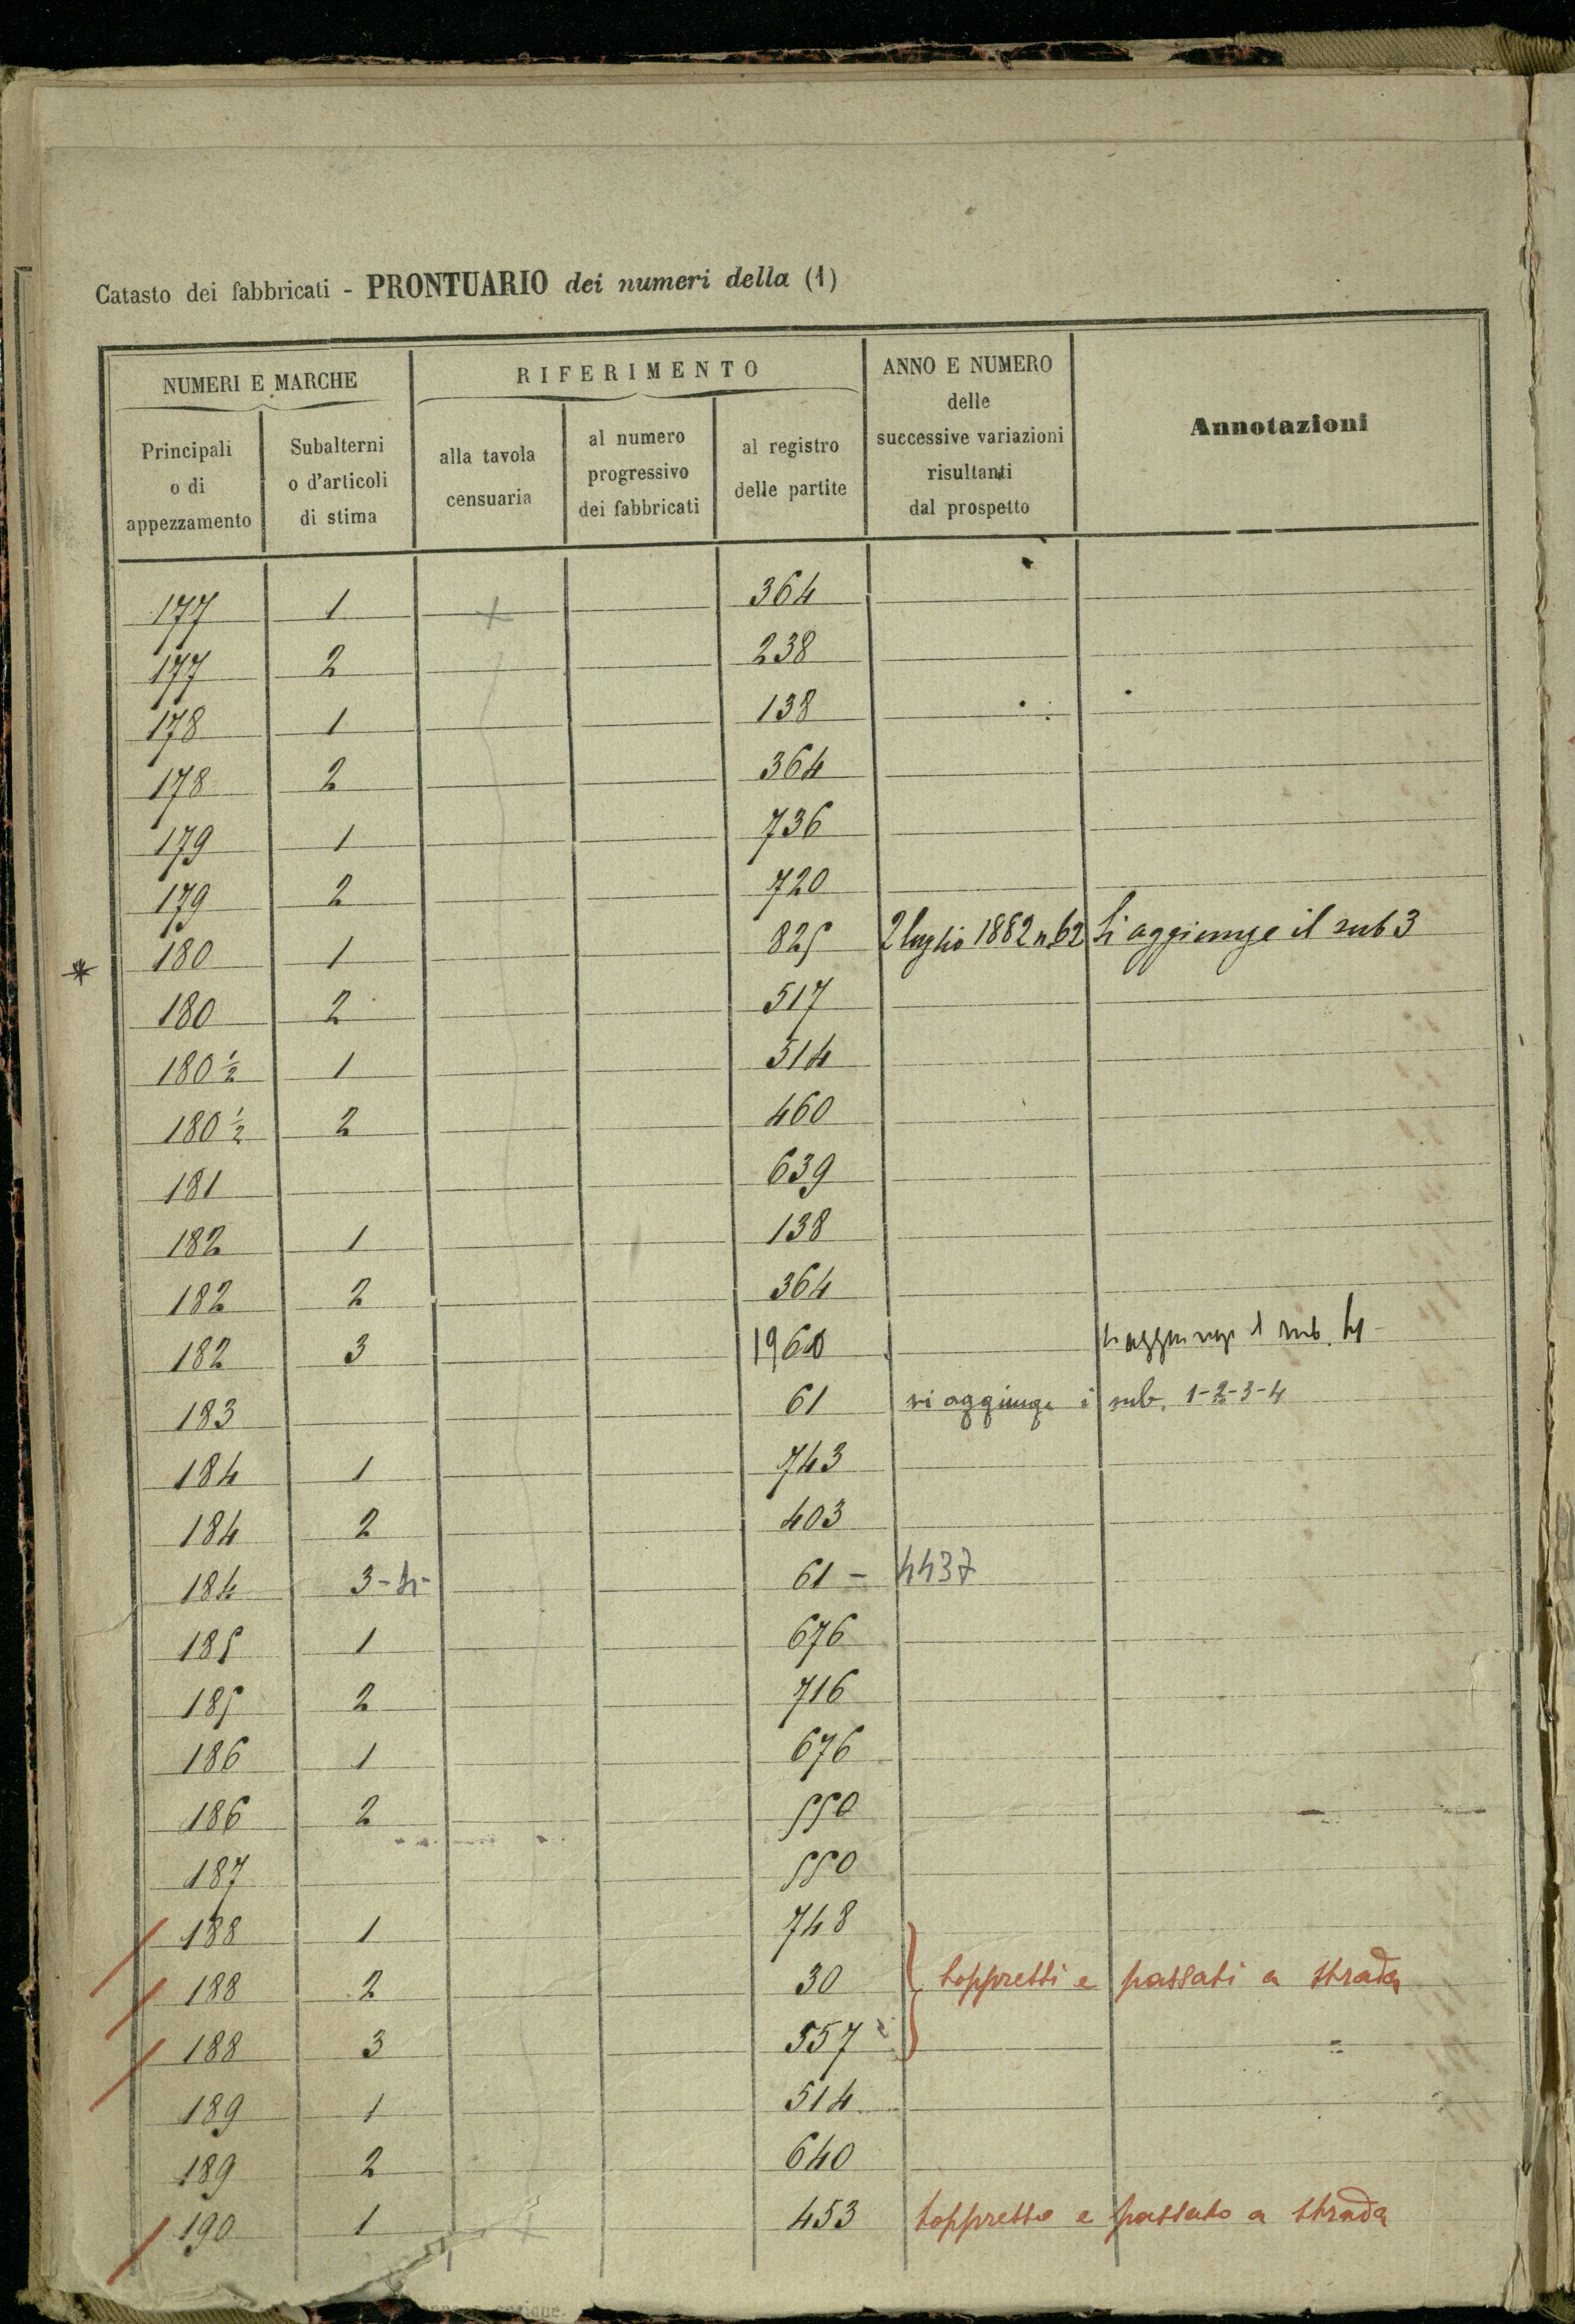 Catasto dei fabbricati - PRONTUARIO dei numeri della (1)
NUMERI E MARCHE
RIFERIMENTO
ANNO E NUMERO
delle
successive variazioni
risultanti
dal prospetto
Annotazioni
Principali
o di
appezzamento
Subalterni
o d'articoli
di stima
alla tavola
censuaria
al numero
progressivo
dei fabbricati
al registro
delle partite
177 1 364
177 2 238
178 1 138
178 2 364
179 1 736
179 2 720
* 180 1 825 2 luglio 1882 n 62 Si aggiunge il sub 3
180 2 517
180 1/2 1 514
180 1/2 2 460
181 639
182 1 138
182 2 364
182 3 1960 sub. 4
183 61 si aggiunge i sub. 1-2-3-4
184 1 743
184 2 403
184 3-4- 61 - 4437
185 1 676
185 2 716
186 1 676
186 2 550
187 550
188 1 748
188 2 30 Soppressi e passati a strada
188 3 557
189 1 514
189 2 640
190 1 453 Soppresso e passato a strada